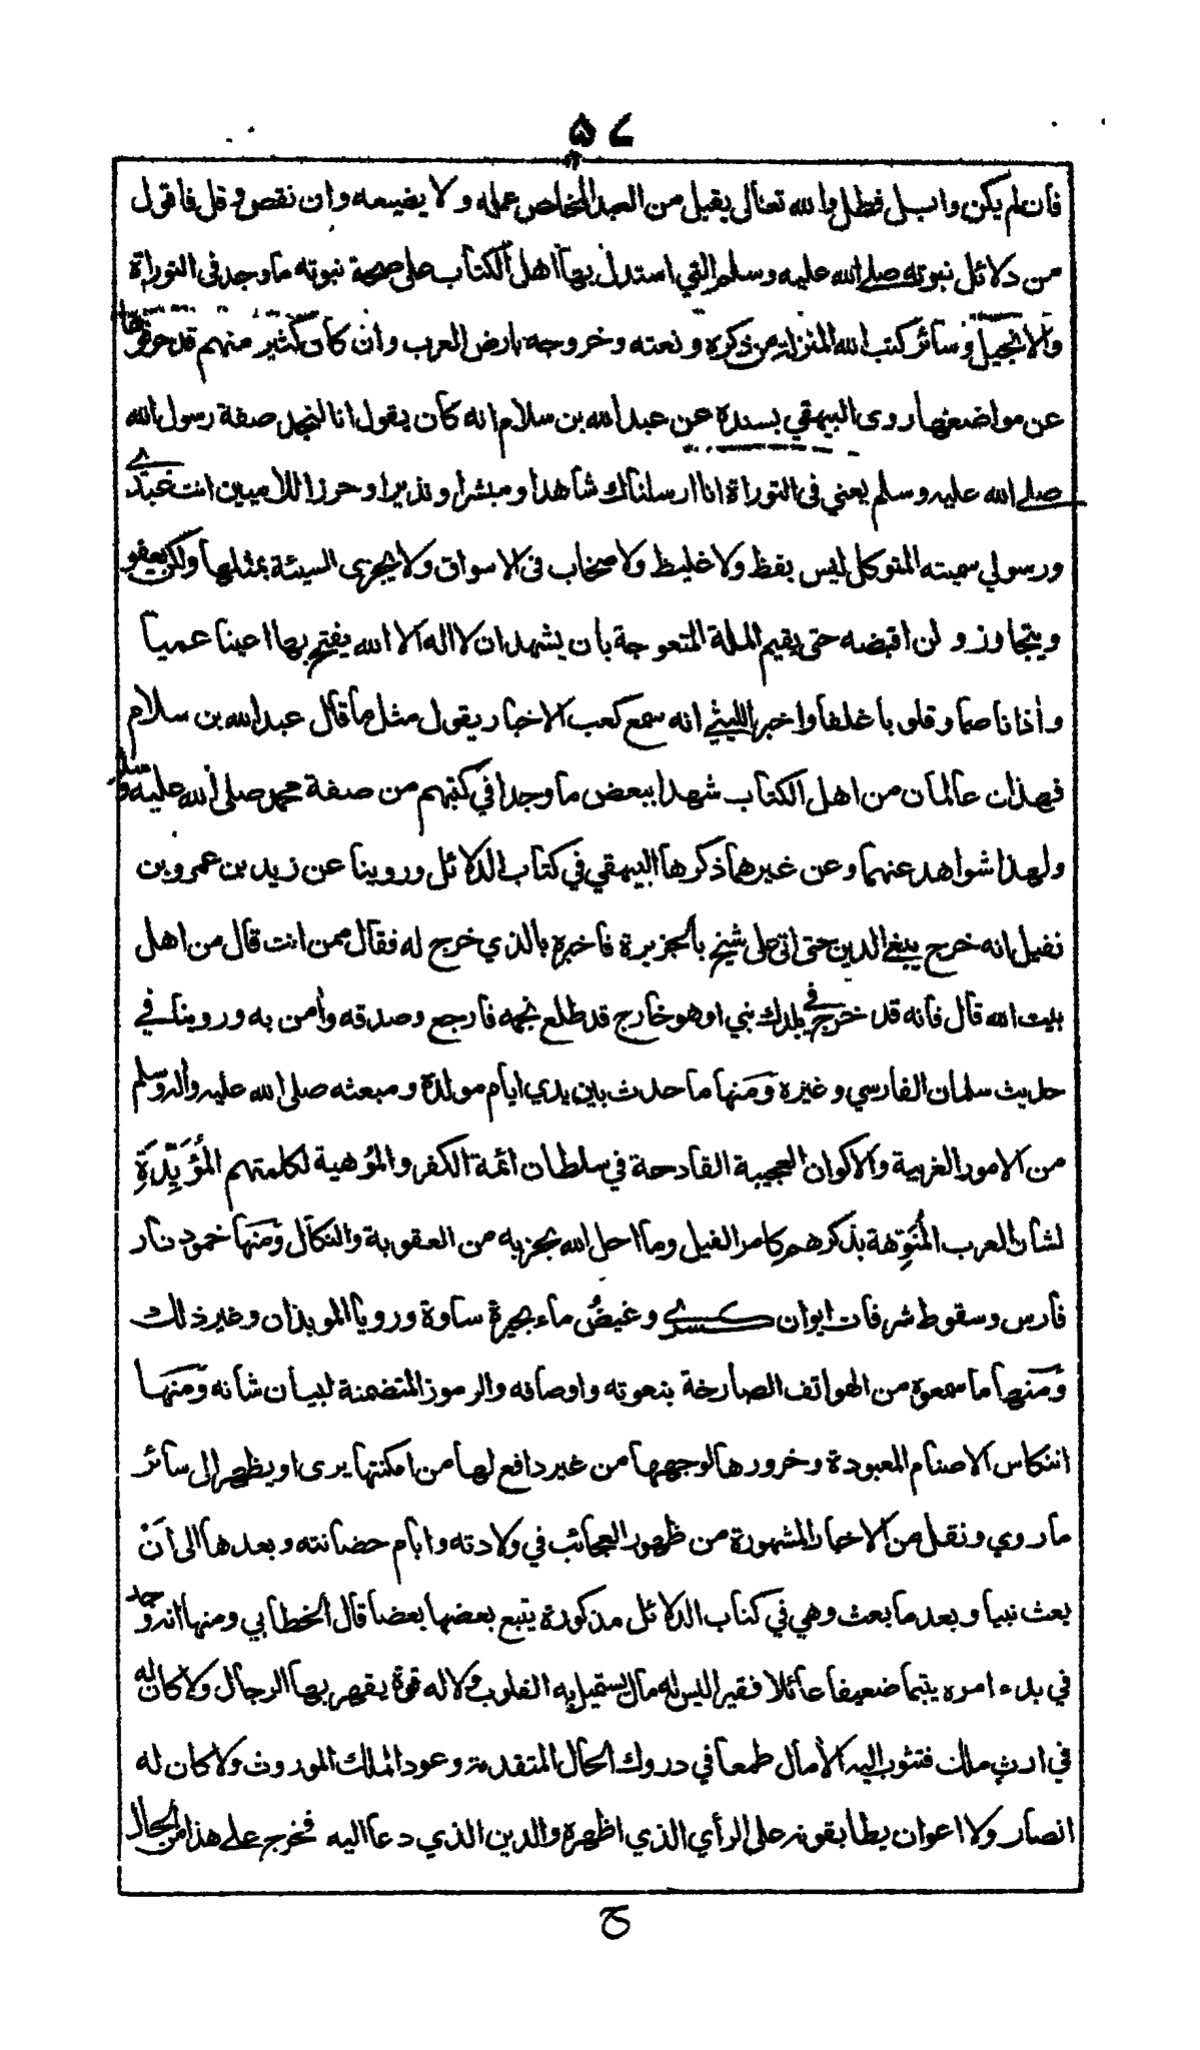 ۵۷
فان لم يكن وابل فطل والله تعالى يقبل من العبد المخلص عمله ولا يضيعه وان نقص وقل فاقول
من دلائل نبوته صلے الله عليه وسلم التي استدل بها اهل الكتاب على صحة نبوته ما وجد فى التوراة
والانجيل وسائر كتب الله المنزلة من ذكره ونعته وخروجه بارض العرب وان كان كثير منهم قد حرفوها
عن مواضعها روى البيهقي بسنده عن عبد الله بن سلام انه كان يقول انا لنجد صفة رسول الله
صلے الله عليه وسلم يعني فى التوراة انا ارسلناك شاهدا ومبشرا ونذيرا وحرزا للاميين انت عبدے
ورسولي سميته المتوكل ليس بفظ ولا غليظ ولا صخاب فى الاسواق ولا يجزى السيئة بمثلها ولكن يعفو
ويتجاوز ولن اقبضه حتى يقيم الملة المتعوجة بان يشهد ان لا اله الا الله يفتح بها اعينا عميا
وأذانا صما وقلوبا غلفا واخبر الليثي انه سمع كعب الاخبار يقول مثل ما قال عبد الله بن سلام
فهذان عالمان من اهل الكتاب شهدا ببعض ما وجدا في كتبهم من صفة محمد صلى الله عليه وسلم
ولهذا شواهد عنهما وعن غيرهما ذكرها البيهقي في كتاب الدلائل وروينا عن زيد بن عمرو بن
نفيل انه خرج يبغي الدين حتى اتى على شيخ بالجزيرة فاخبره بالذي خرج له فقال ممن انت قال من اهل
بيت الله قال فانه قد خرج في بلدك نبي او هو خارج قد طلع نجمه فارجع وصدقه وأمن به وروينا في
حديث سلمان الفارسي وغيره ومنها ما حدث بين يدي ايام مولده ومبعثه صلى الله عليه وأله وسلم
من الامور الغريبة والاكوان العجيبة القادحة في سلطان ائمة الكفر والمؤهية لكلمتهم المُؤَيِّدَةِ
لشان العرب المُنَوِّهة بذكرهم كامر الفيل وما احل الله بحزبه من العقوبة والنكال ومنها خمود نار
فارس وسقوط شرفات ايوان كسرے وغيضُ ماء بحيرة ساوة ورويا الموبذان وغير ذلك
ومنها ما سمعوه من الهواتف الصارخة بنعوته واوصافه والرموز المتضمنة لبيان شانه ومنها
انتكاس الاصنام المعبودة وخرورها لوجهها من غير دافع لها من امكنتها يرى او يظهر الى سائر
ما روي ونقل من الاخبار المشهورة من ظهور العجائب في ولادته وايام حضانته وبعدها الى أنْ
بعث نبيا وبعد ما بعث وهي في كتاب الدلائل مذكورة يتبع بعضها بعضا قال الخطابي ومنها انه وجد
في بدء امره يتيما ضعيفا عائلا فقيرا ليس له مال يستميل به القلوب ولا له قوة يقهر بها الرجال ولا كان له
في ارث ملك فتثوب اليه الأمال طمعا في دروك الحال المتقدمة وعود الملك الموروث ولا كان له
انصار ولا اعوان يطابقونه على الرأي الذي اظهره والدين الذي دعا اليه فخرج علے هذا من الحال
ح